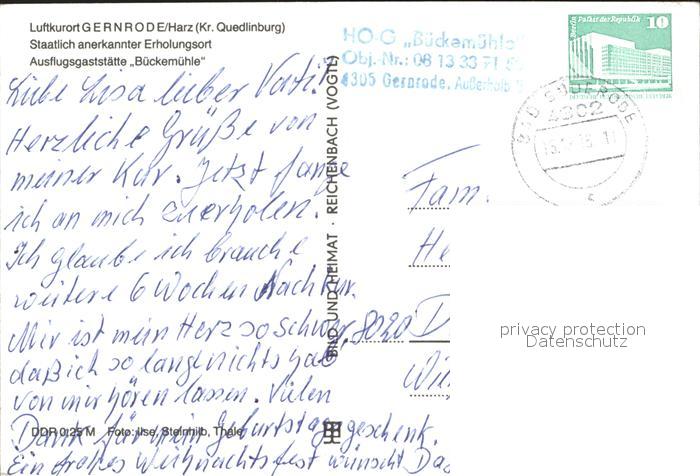 Luftkurort GERNRODE/Harz (Kr. Quedlinburg)
Staatlich anerkannter Erholungsort
Ausflugsgaststätte „Bückemühle“
HO-G „Bückemühle“
Obj.-Nr.: 08 13 33 71
4305 Gernrode, Außerhalb
Berlin Palast der Republik 10
BAD SUDERODE
4302
Liebe Lisa lieber
Herzliche Grüße von
meiner Kur. Jetzt fange
ich an mich zu erholen.
Ich glaube ich brauche
weitere 6 Wochen Nachkur.
Mir ist mein Herz so schwer,
daß ich so lang nichts hab
von mir hören lassen. Vielen
Dank für mein Geburtstagsgeschenk.
Ein frohes Weihnachtsfest wünscht
BILD UND HEIMAT · REICHENBACH (VOGTL)
Fam.
He
8020 D
Wi
DDR 0,25 M Foto: Ilse, Steinhilb, Thale
privacy protection
Datenschutz